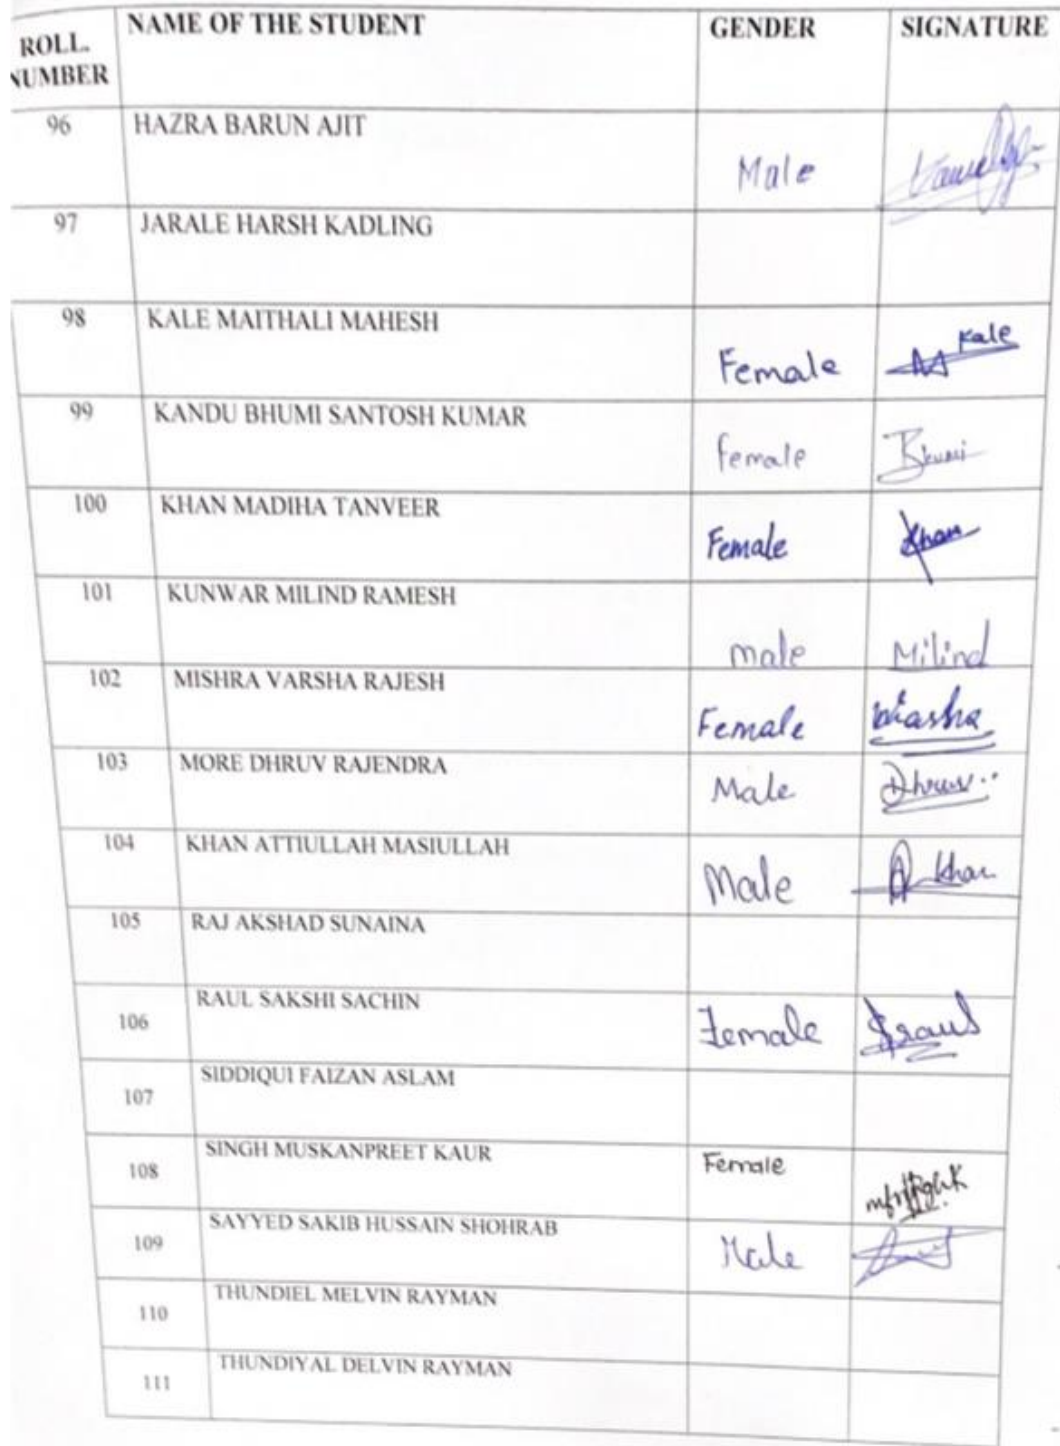 ROLL. NUMBER NAME OF THE STUDENT GENDER SIGNATURE
96 HAZRA BARUN AJIT Male
97 JARALE HARSH KADLING
98 KALE MAITHALI MAHESH Female M Kale
99 KANDU BHUMI SANTOSH KUMAR female Bhumi
100 KHAN MADIHA TANVEER Female Khan
101 KUNWAR MILIND RAMESH male Milind
102 MISHRA VARSHA RAJESH Female
103 MORE DHRUV RAJENDRA Male Dhruv
104 KHAN ATTIULLAH MASIULLAH Male A Khan
105 RAJ AKSHAD SUNAINA
106 RAUL SAKSHI SACHIN Female Sraul
107 SIDDIQUI FAIZAN ASLAM
108 SINGH MUSKANPREET KAUR Female
109 SAYYED SAKIB HUSSAIN SHOHRAB Male
110 THUNDIEL MELVIN RAYMAN
111 THUNDIYAL DELVIN RAYMAN